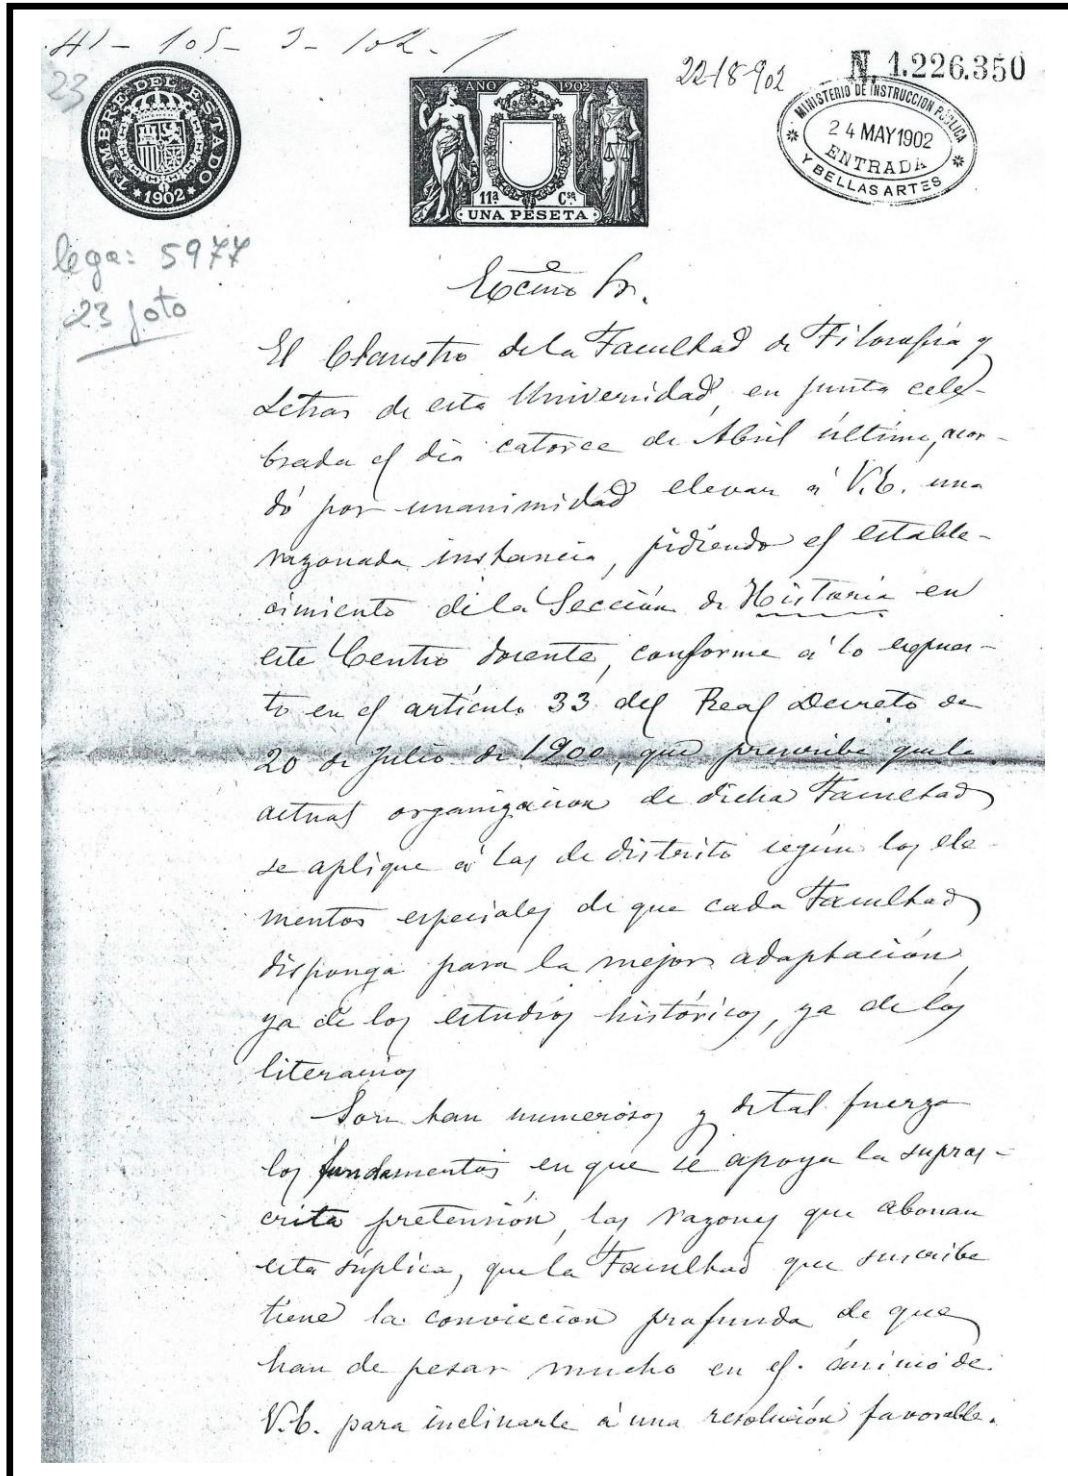 41 - 105 - 3 - 102 - 1
23
TIMBRE DEL ESTADO
*1902*
AÑO 1902
11ª Cse
UNA PESETA
22-8-902
N. 1.226.350
MINISTERIO DE INSTRUCCION PUBLICA
24 MAY 1902
ENTRADA
Y BELLAS ARTES
lega: 5977
23 foto
Excmo Sr.
El Claustro de la Facultad de Filosofía y
Letras de esta Universidad, en junta cele-
brada el día catorce de Abril último, acor-
dó por unanimidad elevar á V.E. una
razonada instancia, pidiendo el estable-
cimiento de la Sección de Historia en
este Centro docente, conforme á lo expues-
to en el artículo 33 del Real Decreto de
20 de Julio de 1900, que prescribe que la
actual organizacion de dicha Facultad
se aplique á las de distrito según los ele-
mentos especiales de que cada Facultad
disponga para la mejor adaptación,
ya de los estudios históricos, ya de los
literarios
Son tan numerosos y de tal fuerza
los fundamentos en que se apoya la supras-
crita pretensión, las razones que abonan
esta súplica, que la Facultad que suscribe
tiene la conviccion profunda de que
han de pesar mucho en el ánimo de
V.E. para inclinarle á una resolución favorable.